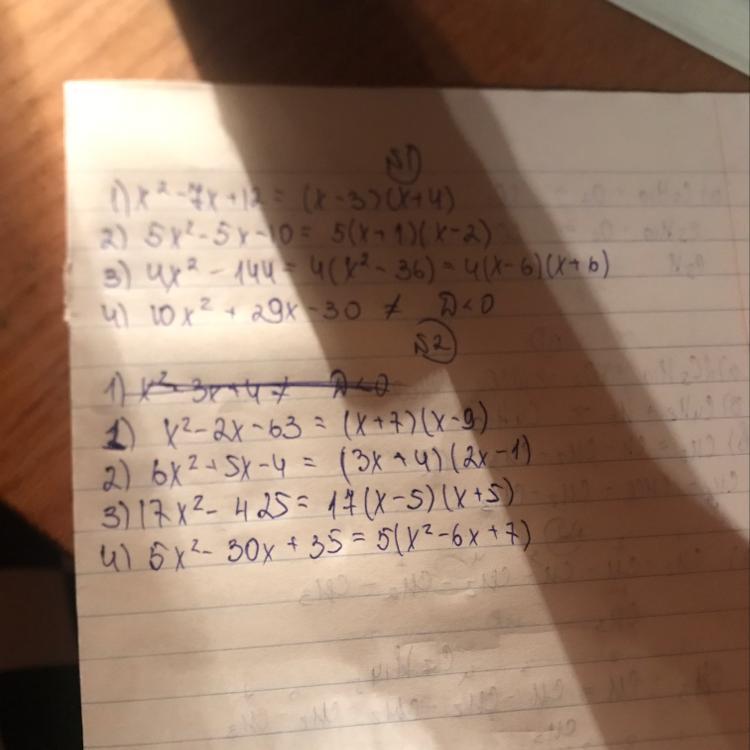 №1
1) x² - 7x + 12 = (x - 3)(x + 4)
2) 5x² - 5x - 10 = 5(x + 1)(x - 2)
3) 4x² - 144 = 4(x² - 36) = 4(x - 6)(x + 6)
4) 10x² + 29x - 30 ≠ D < 0
№2
1) x² - 3x + 4 ≠ D < 0
1) x² - 2x - 63 = (x + 7)(x - 9)
2) 6x² + 5x - 4 = (3x + 4)(2x - 1)
3) 17x² - 425 = 17(x - 5)(x + 5)
4) 5x² - 30x + 35 = 5(x² - 6x + 7)